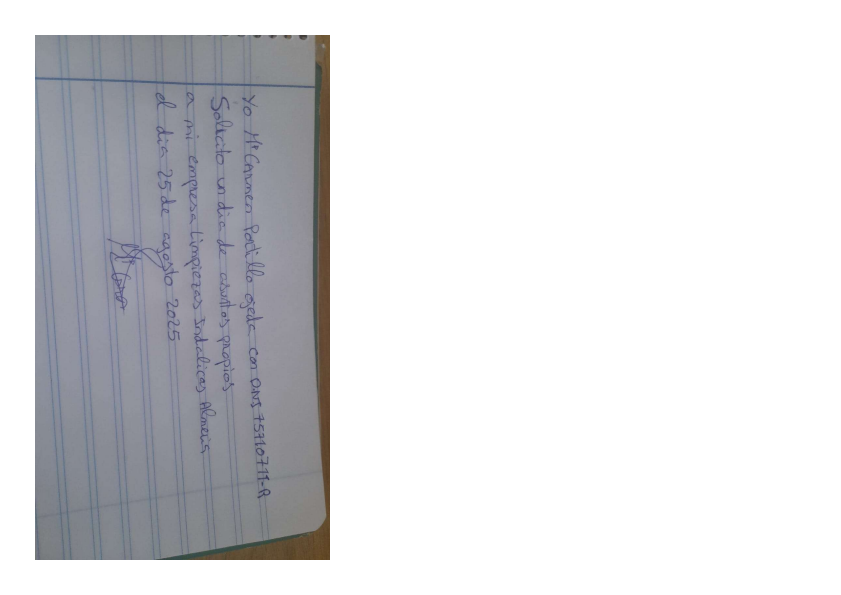 Yo Mª Carmen Portillo ojeda con DNI 75710711-A
Solicito un dia de asuntos propios
a mi empresa Limpiezas Indalicas Almeria
el dia 25 de agosto 2025
Mª Carmen